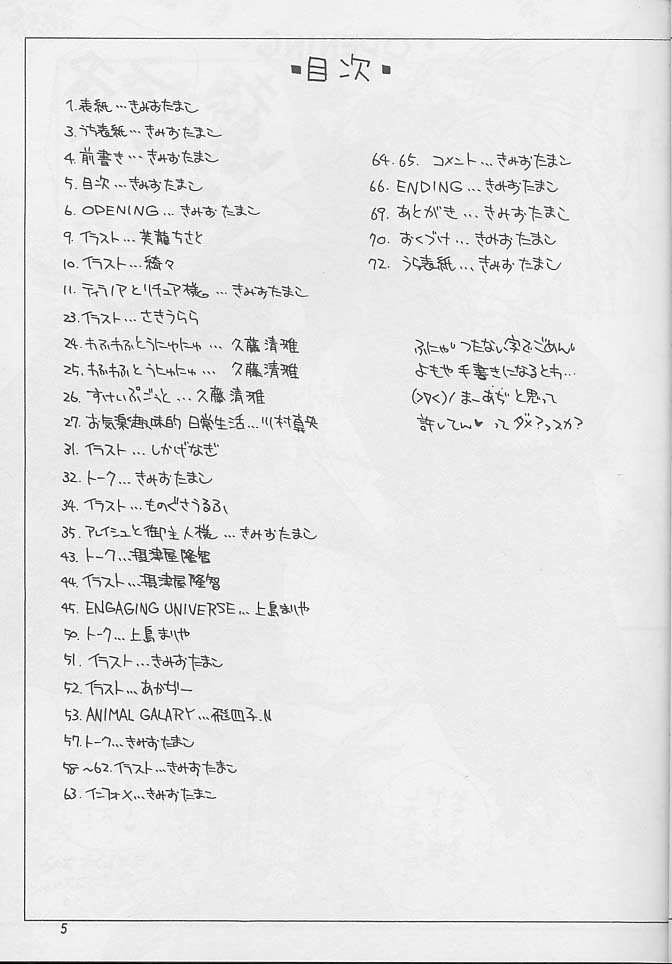 ■目次■
1. 表紙…きみおたまこ
3. うら表紙…きみおたまこ
4. 前書き…きみおたまこ
5. 目次…きみおたまこ
6. OPENING…きみおたまこ
9. イラスト…芙龍ちさと
10. イラスト…綺々
11. ティラノアとリチュア様。…きみおたまこ
23. イラスト…さきうらら
24. わふわふとうにゅにゅ…久藤清雅
25. わふわふとうにゅにゅ…久藤清雅
26. すけいぷごっと…久藤清雅
27. お気楽趣味的 日常生活…川村真央
31. イラスト…しかげなぎ
32. トーク…きみおたまこ
34. イラスト…ものぐさうるふ
35. アレイシュと御主人様…きみおたまこ
43. トーク…摂津屋隆智
44. イラスト…摂津屋隆智
45. ENGAGING UNIVERSE…上島まりや
50. トーク…上島まりや
51. イラスト…きみおたまこ
52. イラスト…あかぢー
53. ANIMAL GALARY…飛四子.N
57. トーク…きみおたまこ
58~62. イラスト…きみおたまこ
63. インフォメ…きみおたまこ
64.65. コメント…きみおたまこ
66. ENDING…きみおたまこ
69. あとがき…きみおたまこ
70. おくづけ…きみおたまこ
72. うら表紙…きみおたまこ
ふにゃ〃つたない字でごめん〃
よもや手書きになるとわ…
(>▽<)/ まーあぢと思って
許してん♥ってダメ?っスか?
5